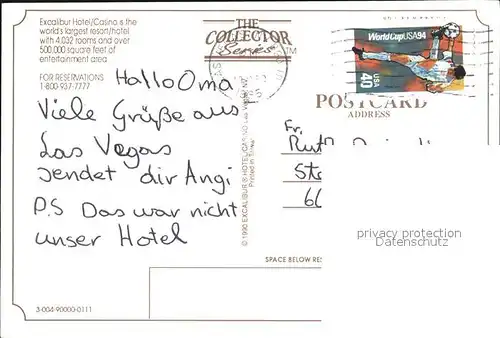 Excalibur Hotel/Casino is the
world's largest resort/hotel
with 4,032 rooms and over
500,000 square feet of
entertainment area
FOR RESERVATIONS
1-800 937-7777
Hallo Oma
Viele Grüße aus
Las Vegas
sendet dir Angi
P.S Das war nicht
unser Hotel
3-004-90000-0111
THE
COLLECTOR
Series TM
© 1990 EXCALIBUR HOTEL/CASINO
Printed in
World Cup USA 94
USA
40
POSTCARD
ADDRESS
Fr.
Ruth
Str
60
SPACE BELOW RES
privacy protection
Datenschutz